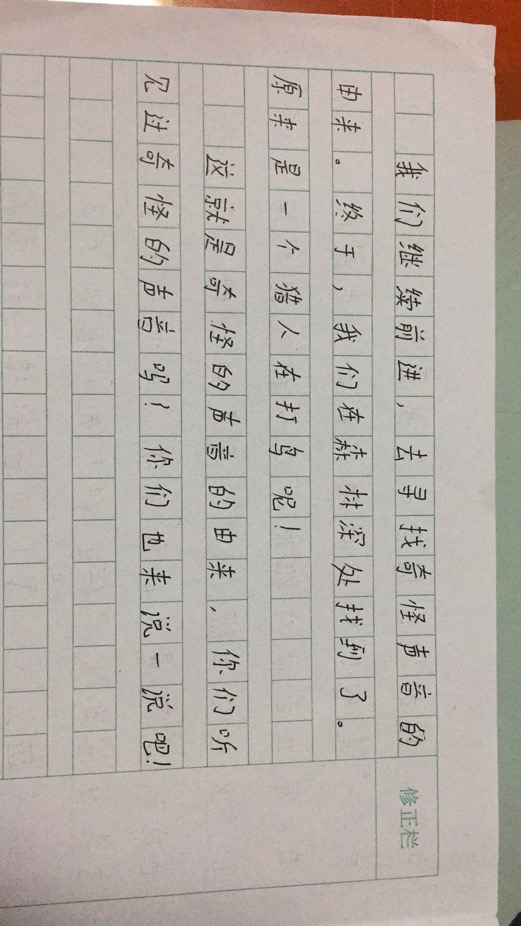 我们继续前进，去寻找奇怪声音的
由来。终于，我们在森林深处找到了。
原来是一个猎人在打鸟呢！
这就是奇怪的声音的由来，你们听
见过奇怪的声音吗？你们也来说一说吧！
修正栏